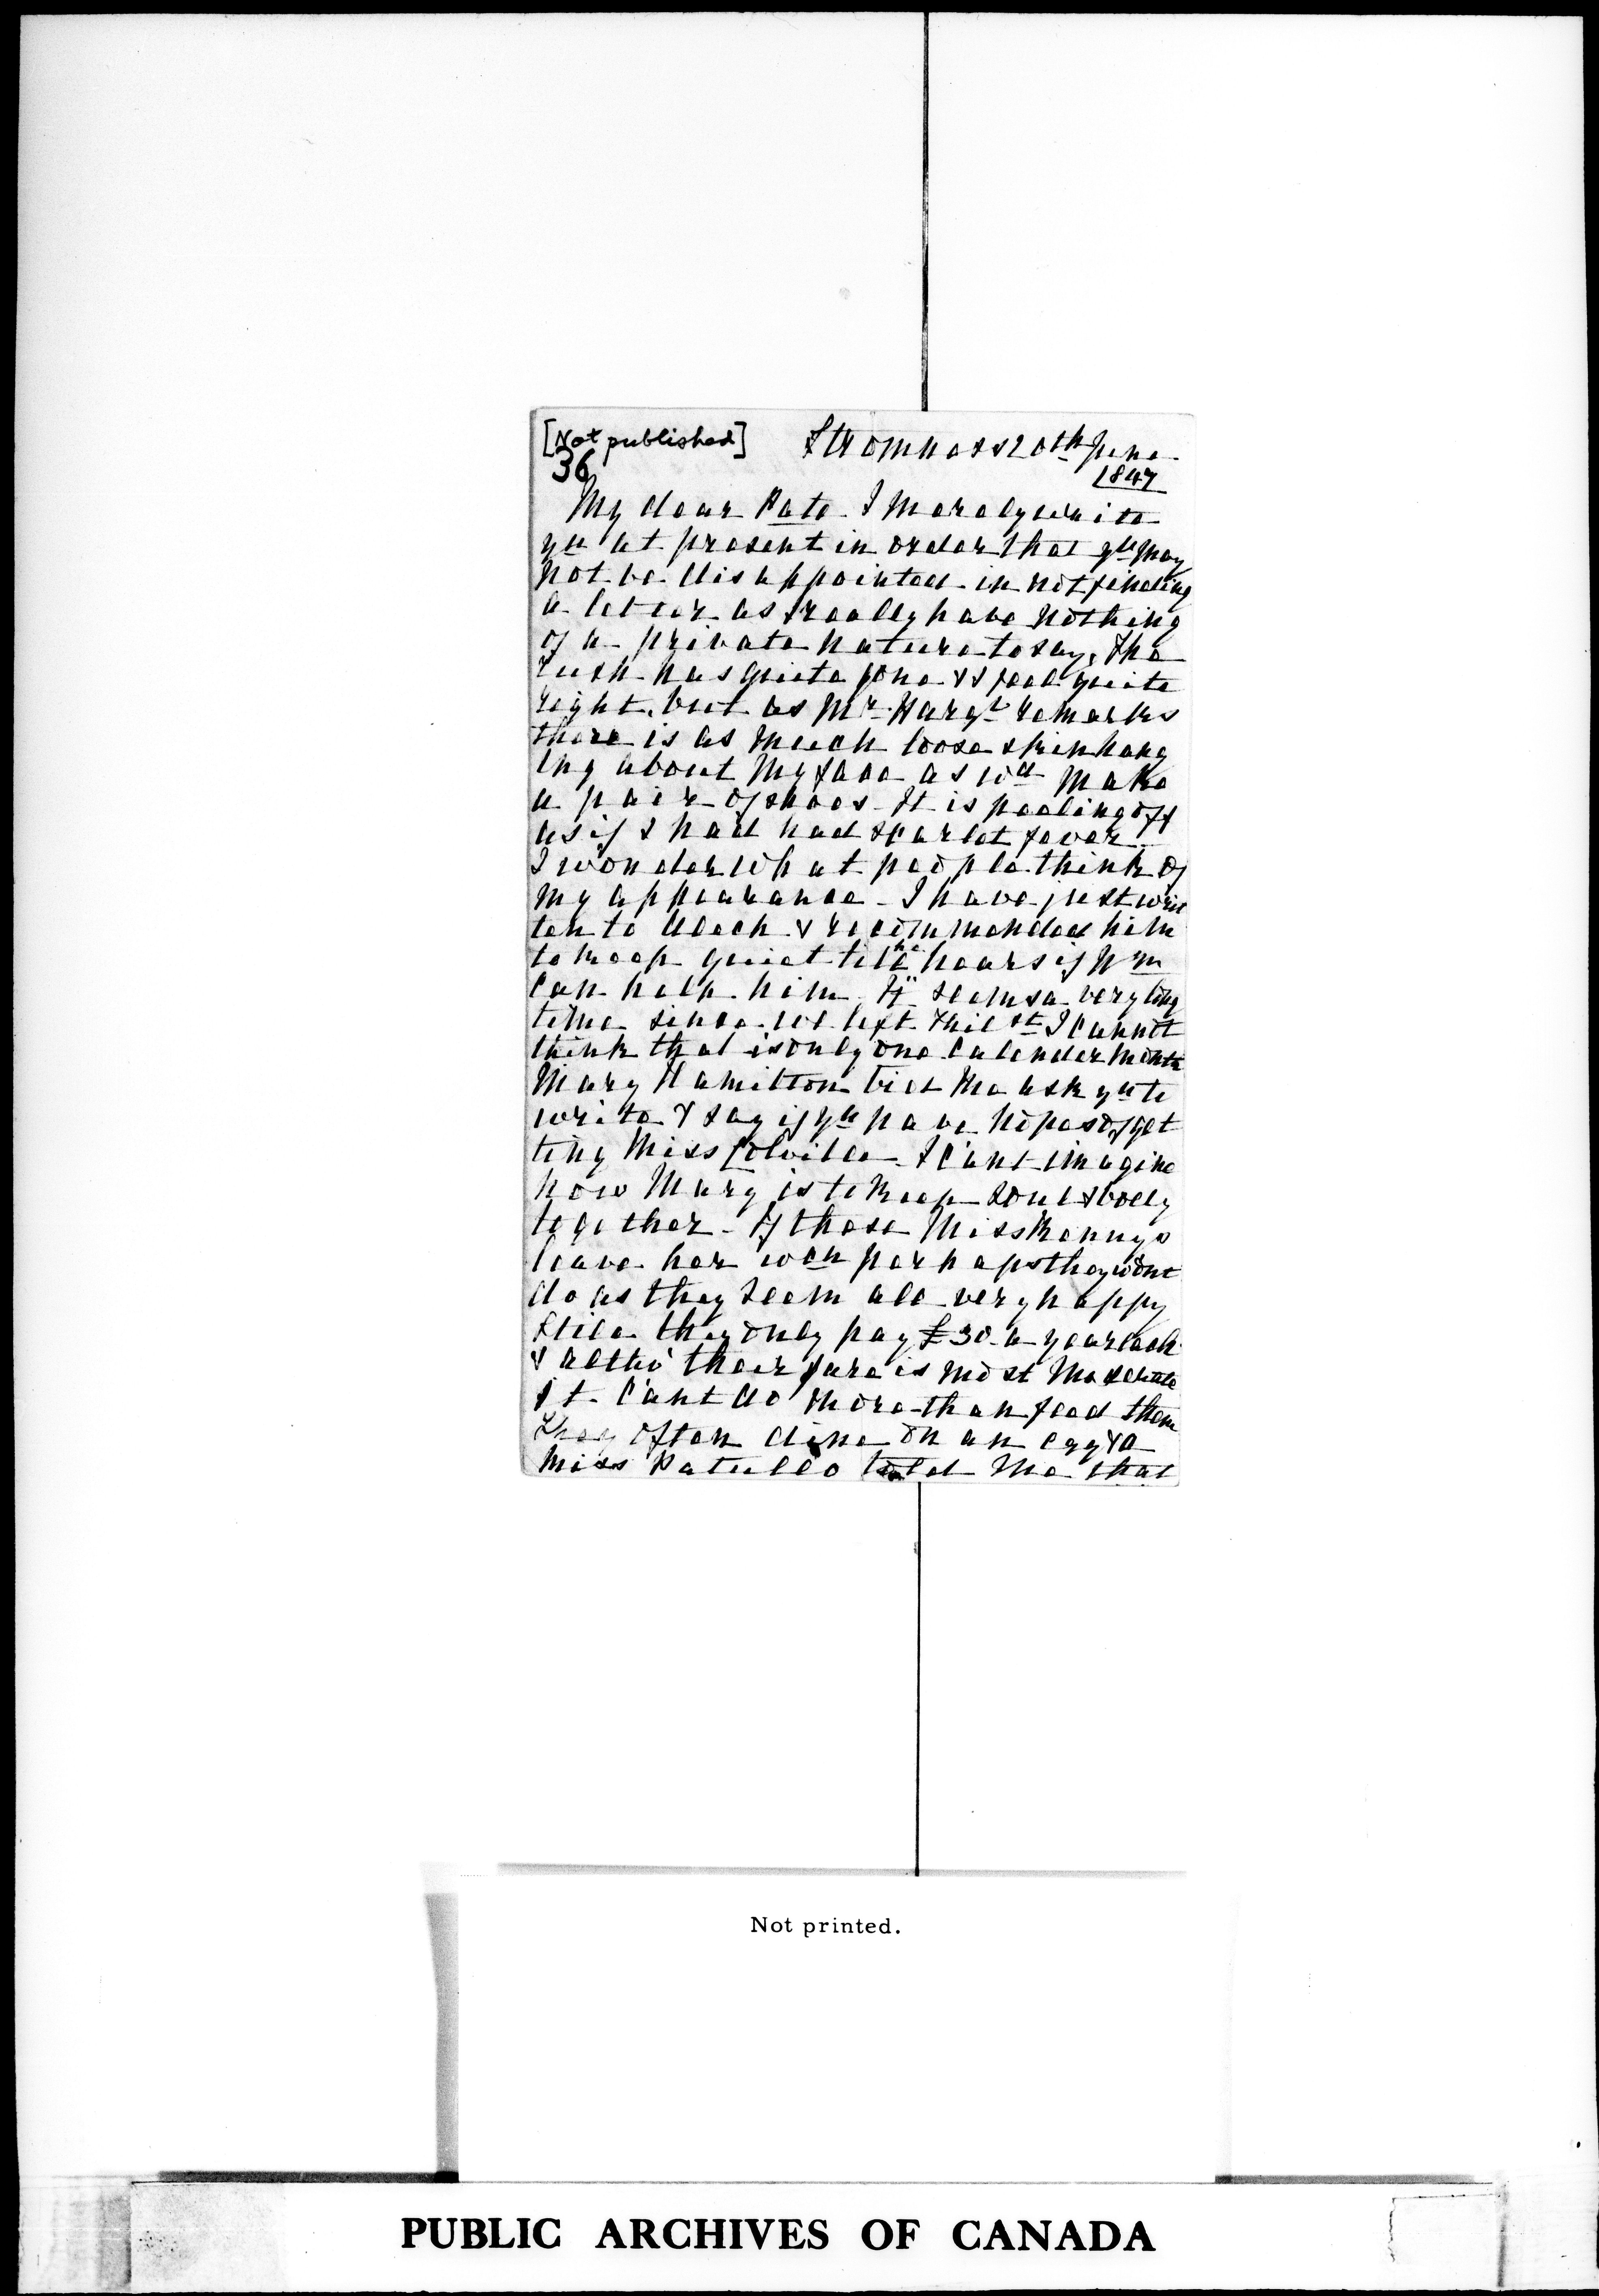 [Not published] Stromness 20th June
36 1847
My dear Kate I merely write
yu at present in order that yu may
not be disappointed in not finding
a letter as I really have nothing
of a private nature to say, The
rush has quite gone & I feel quite
right, but as Mr Hargt remarks
there is as much loose skin hang
ing about my face as wd make
a pair of shoes It is peeling off
as if I had had scarlet fever
I wonder what people think of
my appearance I have just writ
ten to Alech & recommended him
to keep quiet till he hears if Wm
can help him. It seems a very long
time since we left I cannot
think that is only one calender month
Mary Hamilton bids me ask yu to
write & say if yu have hopes of get
ting Miss Colville I can't imagine
how Mary is to keep soul & body
together - If those Miss Rennys
leave her wch perhaps they wont
do as they seem all very happy
Still they only pay £30 a year each
& altho' their fare is most moderate
it can't do more than feed them
They often dine on an egg & a
Miss Patullo told me that
Not printed.
PUBLIC ARCHIVES OF CANADA